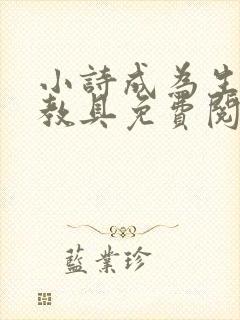 小詩成為生
教具免費閱
藍業珍